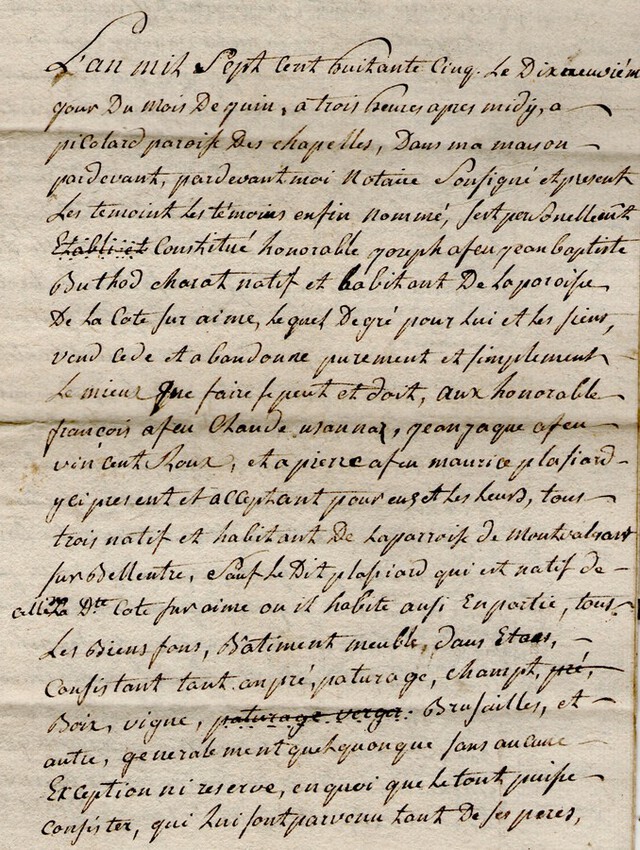 L'an mil Sept Cent huitante Cinq. Le Dixneuvièm
jour Du Mois De juin, a trois heures apres midÿ, a
picolard paroisse Des chapelles, Dans ma maison
pardevant, pardevant moi Notaire Sousigné et present
Les temoint Les témoins enfin nommé, s'est personellemt
Etabli et Constitué honorable joseph a feu jean baptiste
Buthod charat natif et habitant De La paroisse
De La Cote sur aime, Le quel De gré pour Lui et Les siens,
vend cede et abandonne purement et simplement
Le mieux que faire se peut et doit, aux honorable
françois a feu Claude usannaz, jean jaque a feu
vincent Roux, et a pierre a feu maurice plasiard
yci present et acceptant pour eux et Les Leurs, tous
trois natif et habitant De La parroisse de Montvalsant
sur Bellentre, Sauf Le Dit plasiard qui est natif de
La Dte Cote sur aime ou il habite ausi En partie, tous
Les Biens fons, Bâtiment meuble, dans Etaes,
Consistant tant en pré, paturage, champt, pré,
Boix, vigne, paturage verger. Brusailles, et
autre, generalement quelquonque sans aucune
Exception ni reserve, en quoi que Le tout puisse
Consister, qui Lui sont parvenu tant De ses peres,